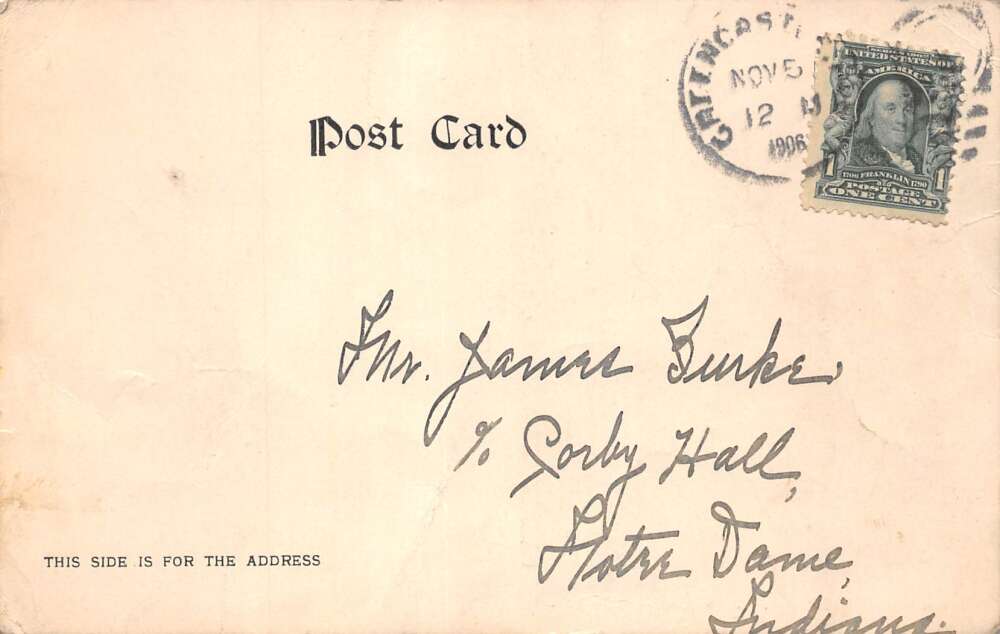 GREENCASTL
NOV 5
12 M
1906
SERIES 1902
UNITED STATES OF
AMERICA
1706 FRANKLIN 1790
1 1
POSTAGE
ONE CENT
Post Card
Mr. James Burke,
% Corby Hall,
Notre Dame,
Indiana.
THIS SIDE IS FOR THE ADDRESS